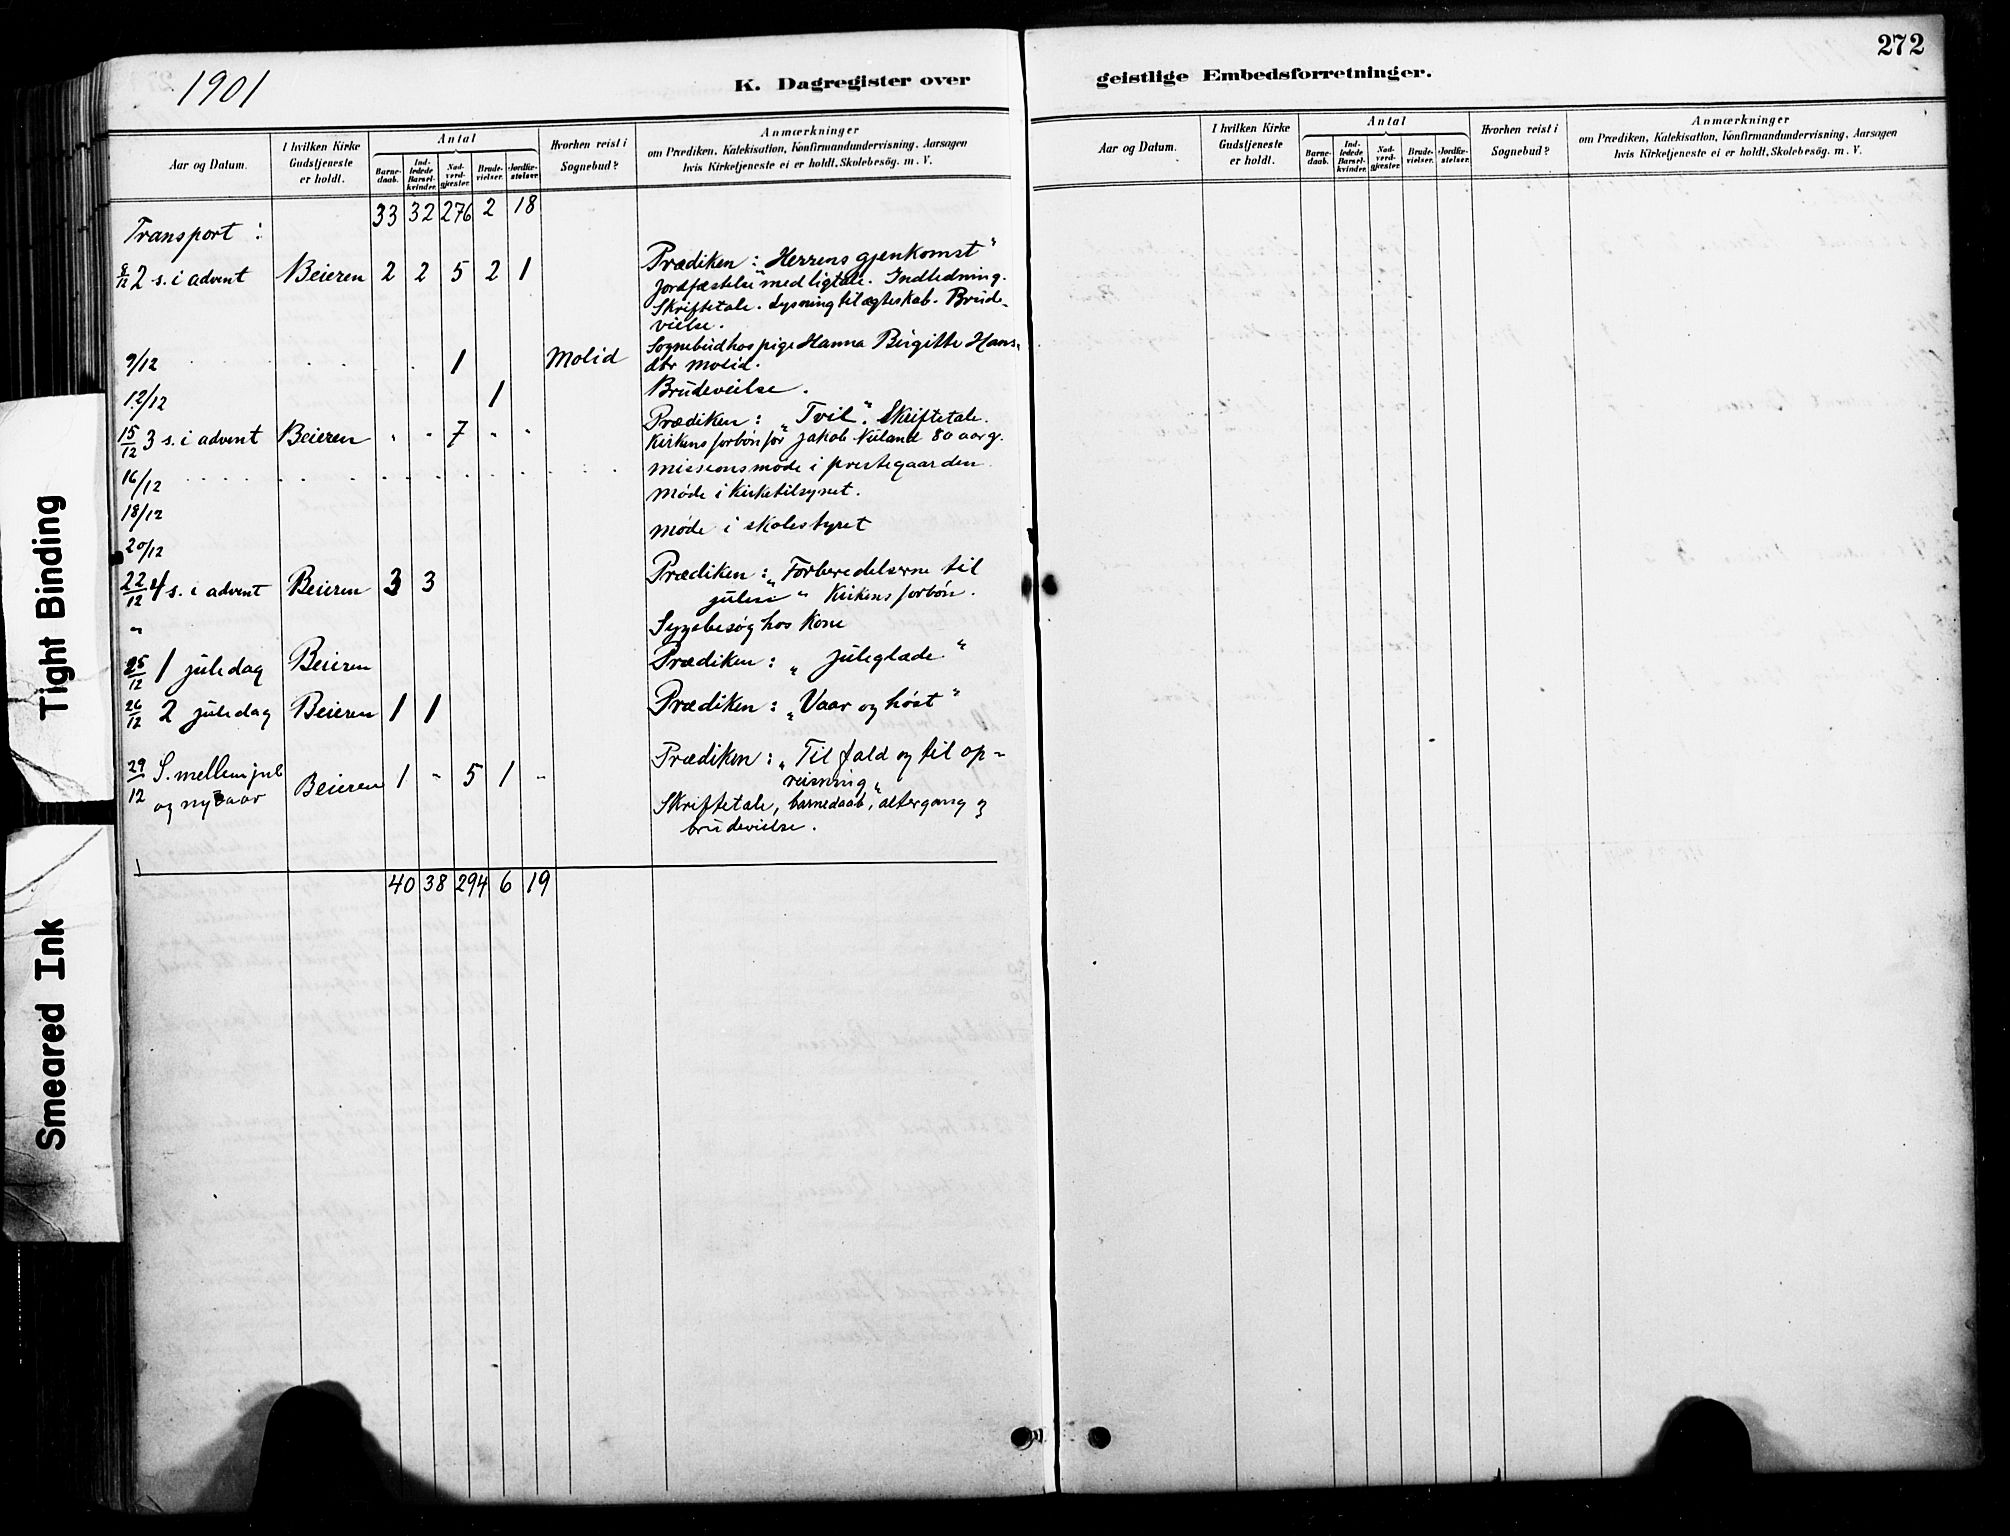 272
1901
K. Dagregister over
geistlige Embedsforretninger.
Aar og Datum.
I hvilken Kirke
Gudstjeneste
er holdt.
Antal
Barne-
daab.
Ind-
ledede
Barsel-
kvinder.
Nad-
verd-
gjæster.
Brude-
vielser.
Jordfæ-
stelser.
Hvorhen reist i
Sognebud?
Anmærkninger
om Prædiken, Katekisation, Konfirmandundervisning, Aarsagen
hvis Kirketjeneste ei er holdt, Skolebesög. m. V.
Aar og Datum.
I hvilken Kirke
Gudstjeneste
er holdt.
Antal
Barne-
daab.
Ind-
ledede
Barsel-
kvinder.
Nad-
verd-
gjæster.
Brude-
vielser.
Jordfæ-
stelser.
Hvorhen reist i
Sognebud?
Anmærkninger
om Prædiken, Katekisation, Konfirmandundervisning, Aarsagen
hvis Kirketjeneste ei er holdt, Skolebesög. m. V.
Transport : 33 32 276 2 18
8/12 2 s. i advent Beieren 2 2 5 2 1 Prædiken : „Herrens gjenkomst"
Jordfæstelse med ligtale. Indledning.
Skriftetale. Lysning til ægteskab. Brude-
vielse.
9/12 1 Molid Sognebud hos pige Hanna Birgitte Hans-
dtr Molid.
12/12 1 Brudevielse.
15/12 3 s. i advent Beieren - - 7 - - Prædiken : „Tvil". Skriftetale.
Kirkens forbøn for Jakob Nuland 80 aar g.
16/12 missionsmøde i prestegaarden
18/12 Møde i kirketilsynet.
20/12 Møde i skolestyret
22/12 4 s. i advent Beieren 3 3 Prædiken : „Forberedelserne til
julen" Kirkens forbøn.
" Sygebesøg hos kone
25/12 1 juledag Beieren Prædiken : „juleglæde"
26/12 2 juledag Beieren 1 1 Prædiken : „Vaar og høst"
29/12 S. mellem jul
og nytaar Beieren 1 - 5 1 - Prædiken : „Til fald og til op-
reisning"
Skriftetale, barnedaab, altergang og
brudevielse.
40 38 294 6 19
Tight Binding
Smeared Ink